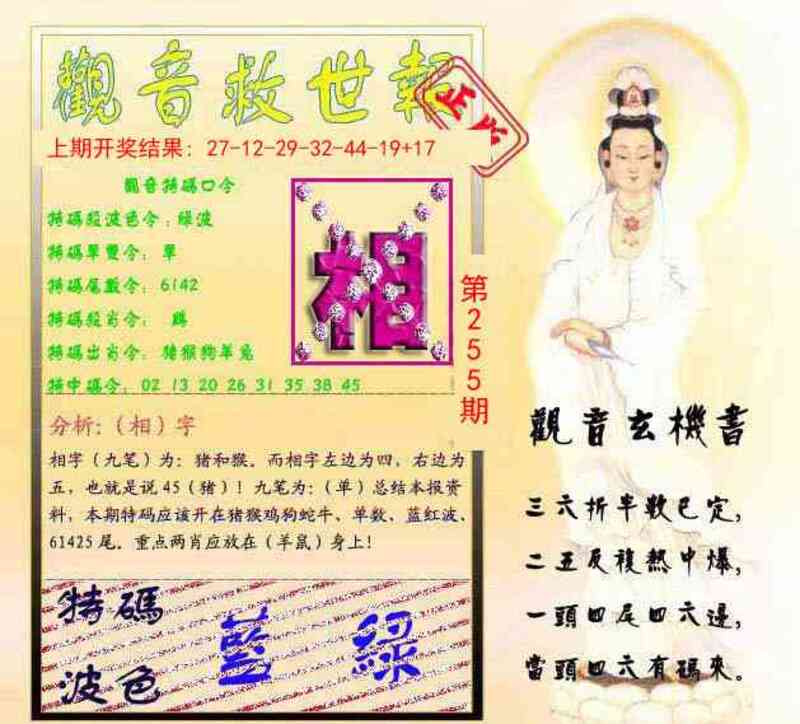 觀音救世報
正版
上期开奖结果：27-12-29-32-44-19+17
觀音特碼口令
特碼殺波色令：綠波
特碼單雙令：單
特碼尾數令：6142
特碼殺肖令：
特碼出肖令：猪猴狗羊兔
特中碼令：02 13 20 26 31 35 38 45
相
第255期
分析:（相）字
相字（九笔）为：猪和猴。而相字左边为四，右边为
五，也就是说45（猪）！九笔为:（单）总结本报资
料，本期特码应该开在猪猴鸡狗蛇牛、单数、蓝红波、
61425尾。重点两肖应放在（羊鼠）身上！
特碼
波色
藍 綠
觀音玄機書
三六折半數已定，
二五反複熱中爆，
一頭四尾四六邊，
當頭四六有碼來。